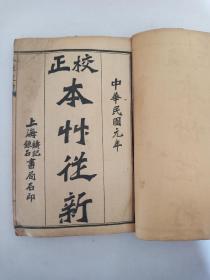 中華民國元年
校正
本艸從新
上海鑄記書局石印
錬石